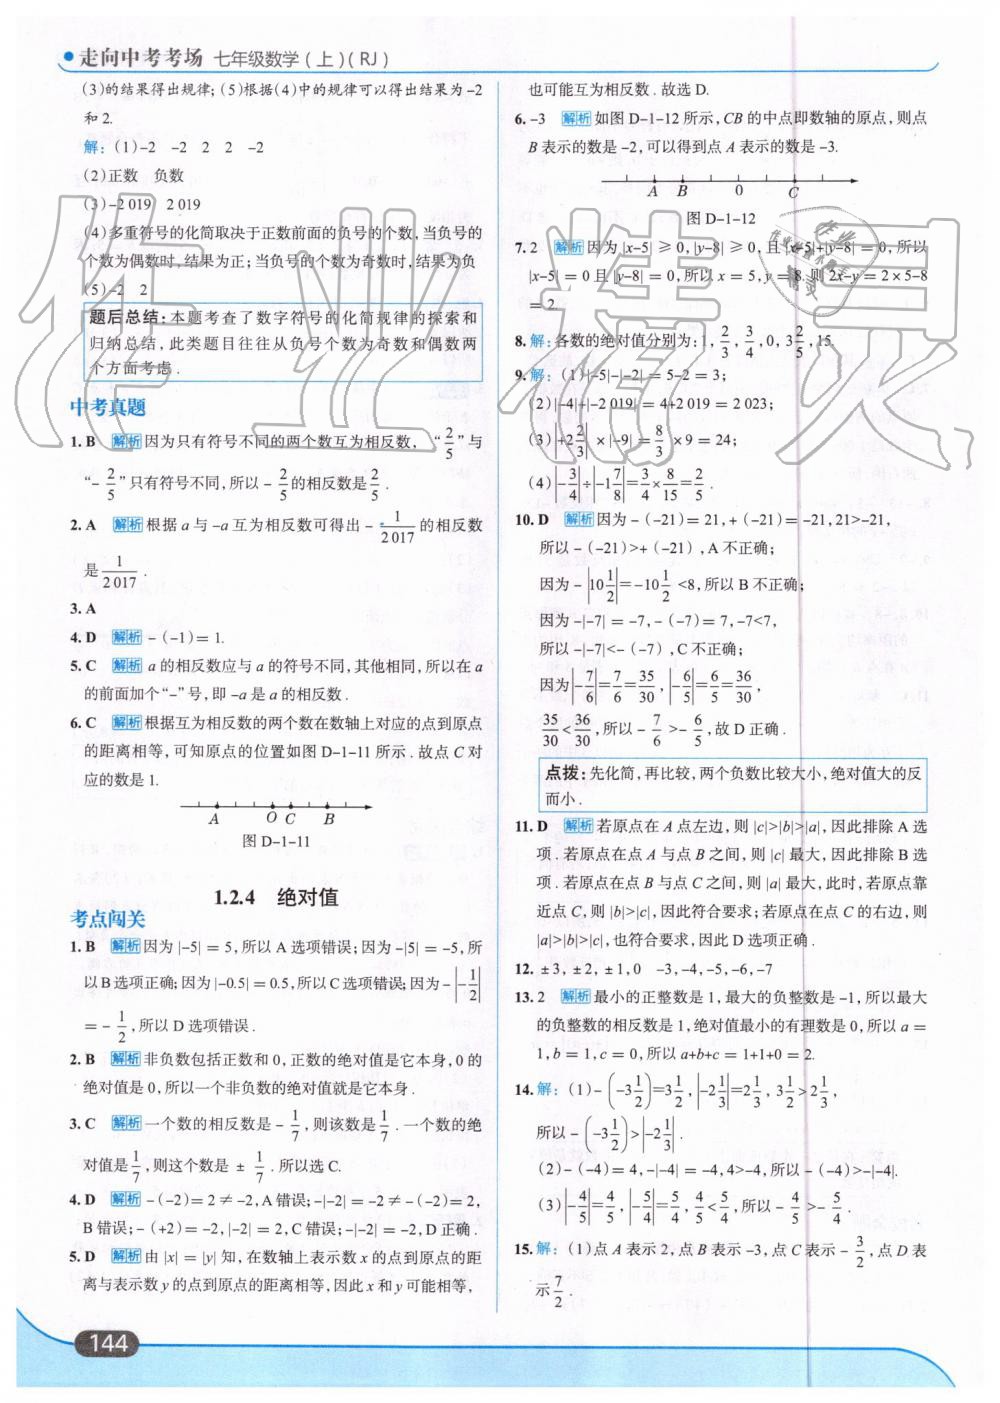 走向中考考场 七年级数学(上)(RJ)
(3)的结果得出规律;(5)根据(4)中的规律可以得出结果为-2
和2.
解:(1)-2 -2 2 2 -2
(2)正数 负数
(3)-2 019 2 019
(4)多重符号的化简取决于正数前面的负号的个数,当负号的
个数为偶数时,结果为正;当负号的个数为奇数时,结果为负
(5)-2 2
题后总结:本题考查了数字符号的化简规律的探索和
归纳总结,此类题目往往从负号个数为奇数和偶数两
个方面考虑.
中考真题
1. B 解析 因为只有符号不同的两个数互为相反数, “2/5”与
“-2/5”只有符号不同,所以-2/5的相反数是2/5.
2. A 解析 根据a与-a互为相反数可得出-1/2 017的相反数
是1/2 017.
3. A
4. D 解析 -(-1)=1.
5. C 解析 a的相反数应与a的符号不同,其他相同,所以在a
的前面加个“-”号,即-a是a的相反数.
6. C 解析 根据互为相反数的两个数在数轴上对应的点到原点
的距离相等,可知原点的位置如图D-1-11所示.故点C对
应的数是1.
A O C B
图D-1-11
1.2.4 绝对值
考点闯关
1. B 解析 因为|-5|=5,所以A选项错误;因为-|5|=-5,所
以B选项正确;因为|-0.5|=0.5,所以C选项错误;因为-|-1/2|
=-1/2,所以D选项错误.
2. B 解析 非负数包括正数和0,正数的绝对值是它本身,0的
绝对值是0,所以一个非负数的绝对值就是它本身.
3. C 解析 一个数的相反数是-1/7,则该数是1/7.一个数的绝
对值是1/7,则这个数是±1/7.所以选C.
4. D 解析 -(-2)=2≠-2,A错误;-|-2|=-2≠-(-2)=2,
B错误;-(+2)=-2,|-2|=2,C错误;-|-2|=-2,D正确.
5. D 解析 由|x|=|y|知,在数轴上表示数x的点到原点的距
离与表示数y的点到原点的距离相等,因此x和y可能相等,
也可能互为相反数.故选D.
6. -3 解析 如图D-1-12所示,CB的中点即数轴的原点,则点
B表示的数是-2,可以得到点A表示的数是-3.
A B 0 C
图D-1-12
7. 2 解析 因为|x-5|≥0,|y-8|≥0,且|x-5|+|y-8|=0,所以
|x-5|=0且|y-8|=0,所以x=5,y=8.则2x-y=2×5-8
=2.
8. 解:各数的绝对值分别为:1,2/3,3/4,0,3 2/5,15.
9. 解:(1)|-5|-|-2|=5-2=3;
(2)|-4|+|-2 019|=4+2 019=2 023;
(3)|+2 2/3|×|-9|=8/3×9=24;
(4)|-3/4|÷|-1 7/8|=3/4×8/15=2/5.
10. D 解析 因为-(-21)=21,+(-21)=-21,21>-21,
所以-(-21)>+(-21),A不正确;
因为-|10 1/2|=-10 1/2<8,所以B不正确;
因为-|-7|=-7,-(-7)=7,-7<7,
所以-|-7|<-(-7),C不正确;
因为|-7/6|=7/6=35/30,|-6/5|=6/5=36/30,
35/30<36/30,所以-7/6>-6/5,故D正确.
点拨:先化简,再比较,两个负数比较大小,绝对值大的反
而小.
11. D 解析 若原点在A点左边,则|c|>|b|>|a|,因此排除A选
项.若原点在点A与点B之间,则|c|最大,因此排除B选
项.若原点在点B与点C之间,则|a|最大,此时,若原点靠
近点C,则|b|>|c|,因此符合要求;若原点在点C的右边,则
|a|>|b|>|c|,也符合要求,因此D选项正确.
12. ±3,±2,±1,0 -3,-4,-5,-6,-7
13. 2 解析 最小的正整数是1,最大的负整数是-1,所以最大
的负整数的相反数是1,绝对值最小的有理数是0,所以a=
1,b=1,c=0,所以a+b+c=1+1+0=2.
14. 解:(1)-(-3 1/2)=3 1/2,|-2 1/3|=2 1/3,3 1/2>2 1/3,
所以-(-3 1/2)>|-2 1/3|.
(2)-(-4)=4,-|-4|=-4,4>-4,所以-(-4)>-|-4|.
(3)|-4/5|=4/5,|-5/4|=5/4,4/5<5/4,所以-4/5>-5/4.
15. 解:(1)点A表示2,点B表示-3,点C表示-3/2,点D表
示7/2.
144
作业精灵